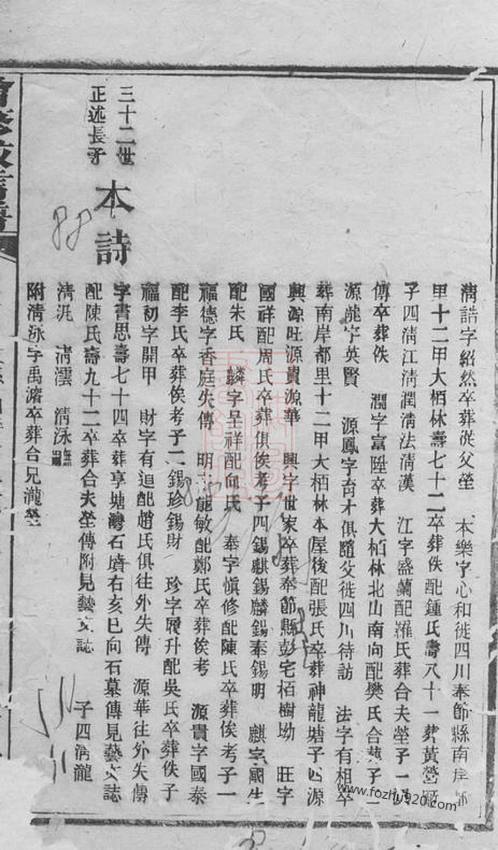 三十二世
正述長子
本詩
字書思壽七十四卒葬享塘灣石墳右亥巳向石墓傳見藝文誌 子四淸瀧
配陳氏壽九十二卒葬合夫塋傳附見藝文誌
淸涀 淸澐 淸泳
附淸泳字禹濱卒葬合兄瀧塋
淸誥字紹然卒葬從父塋 本樂字心和徙四川奉節縣南岸
里十二甲大栢林壽七十二卒葬佚配鍾氏壽八十一葬黃
子四淸江淸潤淸法淸漢 江字盛蘭配羅氏葬合夫塋子一
傳卒葬佚 潤字富陞卒葬大栢林北山南向配樊氏合葬子二
源龍字英賢 源鳳字奇才俱隨父徙四川待訪 法字有相卒
葬南岸都里十二甲大栢林本屋後配張氏卒葬神龍塘子四源
興源旺源貴源華 興字世家卒葬奉節縣彭宅栢樹坳 旺字
國祥配周氏卒葬俱俟考子四錫麒錫麟錫泰錫明 麒字國生
配朱氏 麟字呈祥配向氏 奉字愼修配陳氏卒葬俟考子一
福德字香庭失傳 明字能敏配鄭氏卒葬俟考 源貴字國泰
配李氏卒葬俟考子二錫珍錫財 珍字履升配吳氏卒葬佚子
福初字開甲 財字有迪配趙氏俱往外失傳 源華往外失傳
www.fozhu920.com